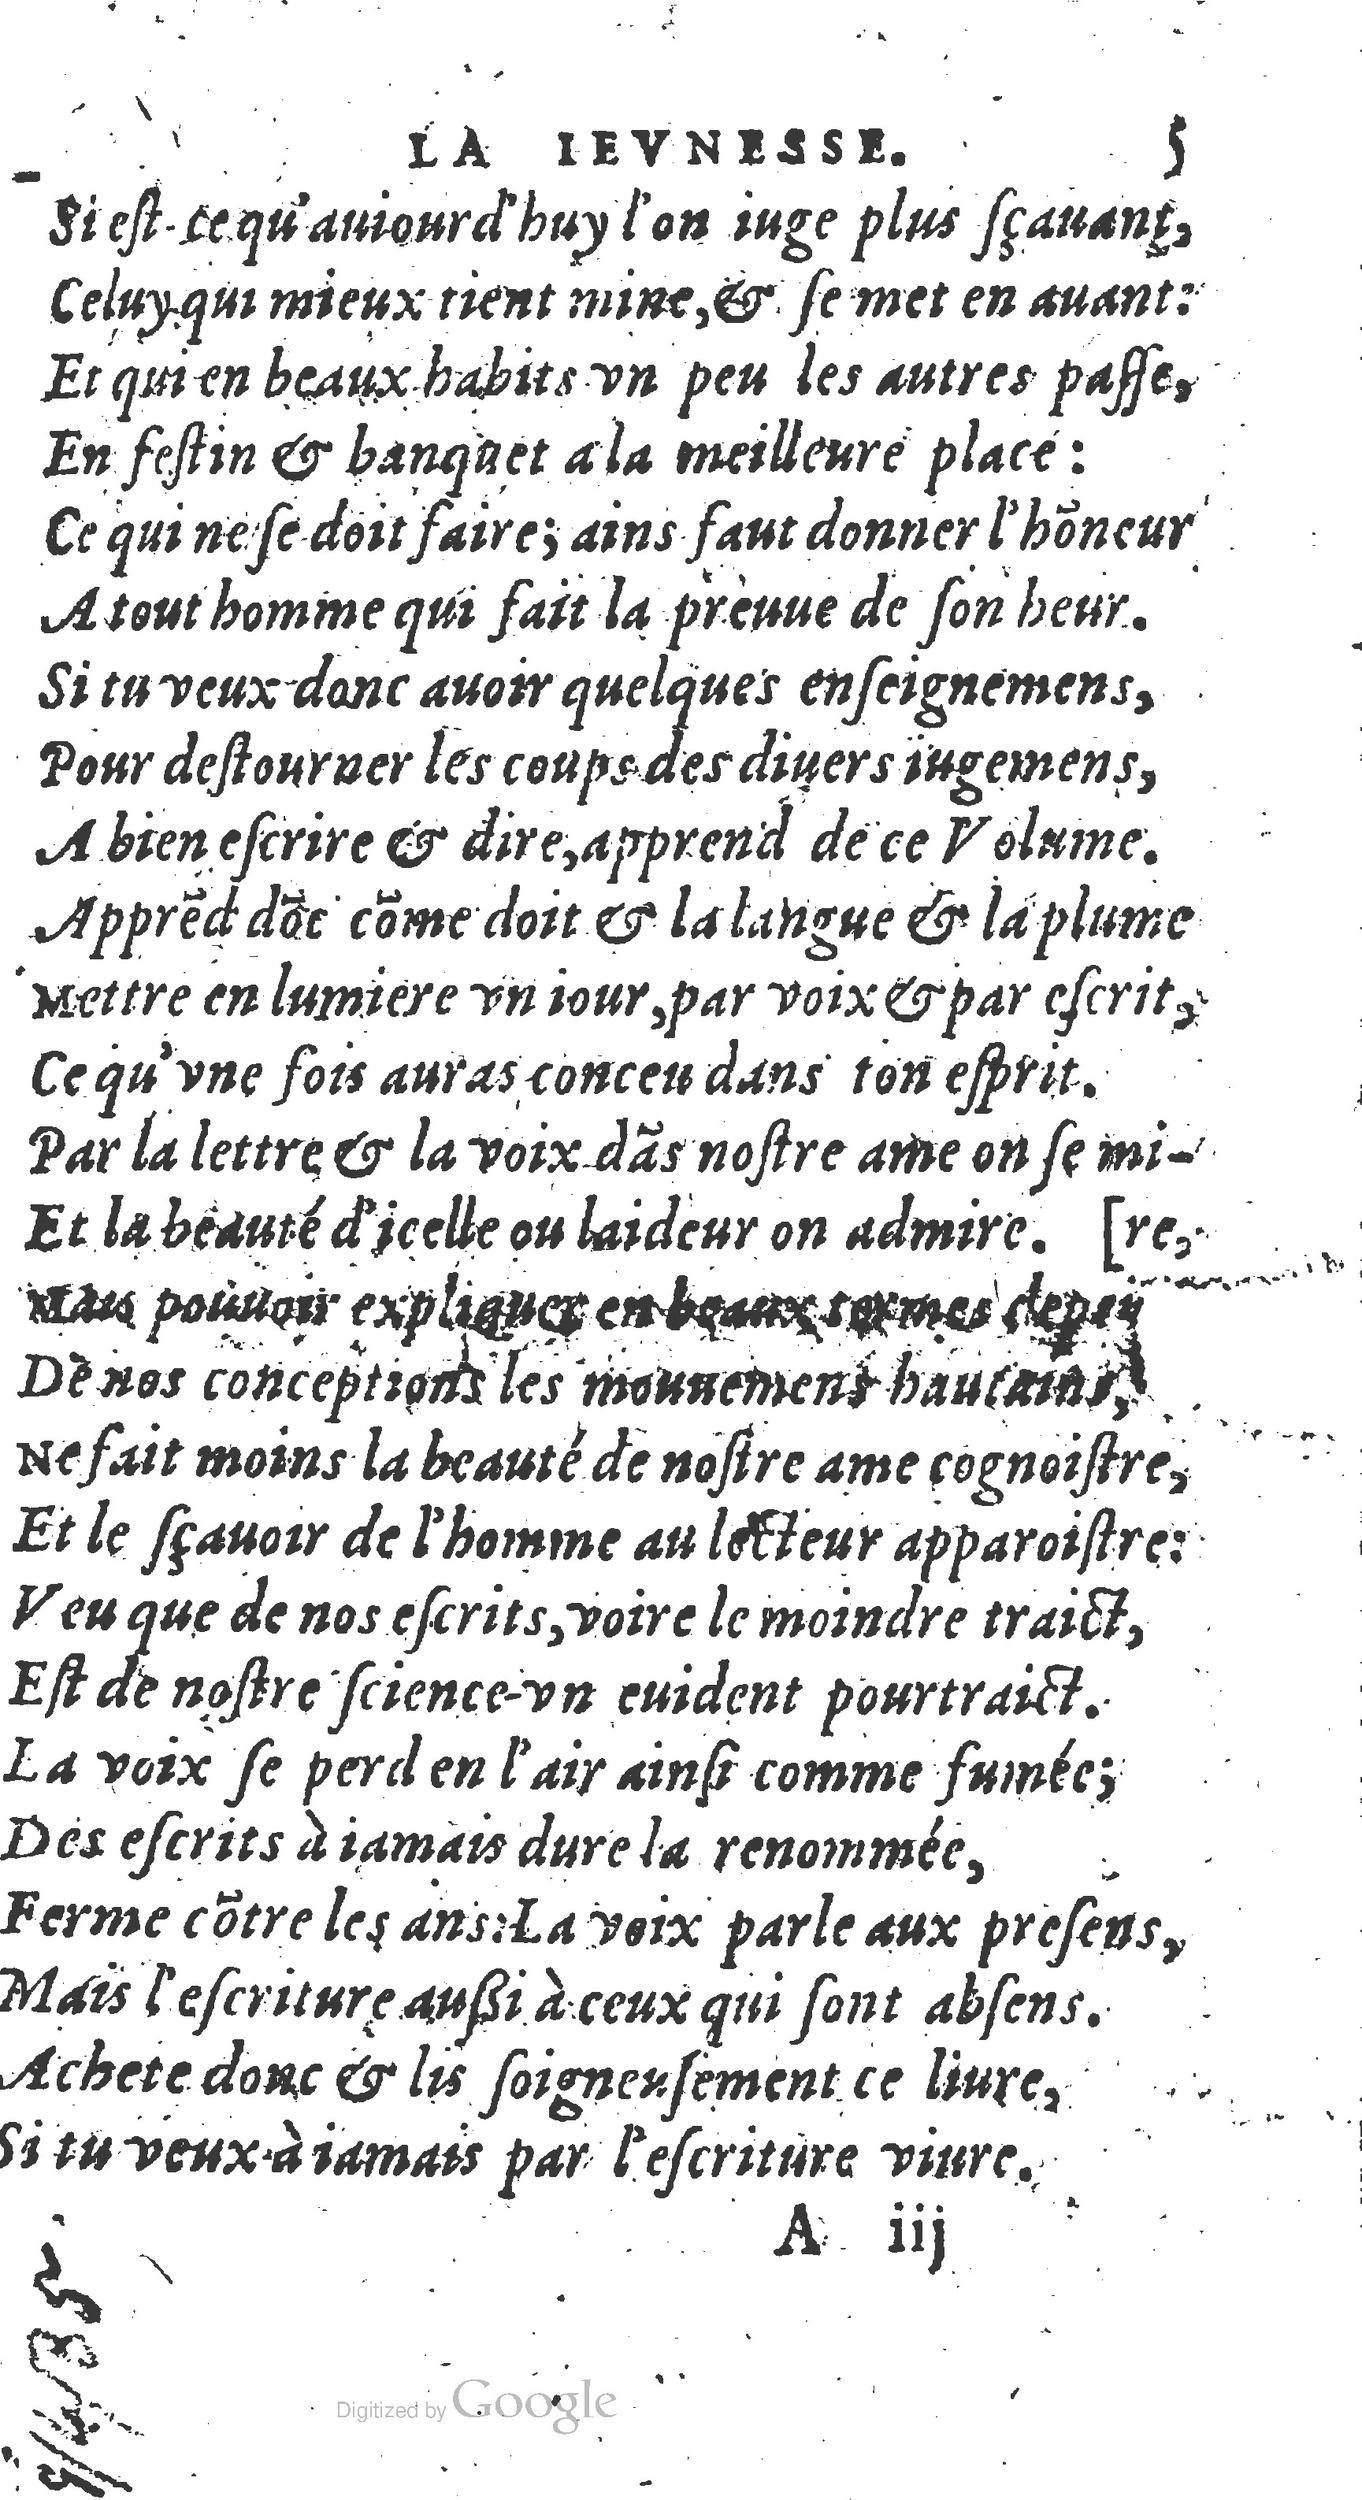 LA IEVNESSE. 5
Si est-ce qu'auiourd'huy l'on iuge plus sçauant,
Celuy qui mieux tient mine, & se met en auant:
Et qui en beaux habits vn peu les autres passe,
En festin & banquet a la meilleure place:
Ce qui ne se doit faire; ains faut donner l'hõneur
A tout homme qui fait la preuue de son heur.
Si tu veux donc auoir quelques enseignemens,
Pour destourner les coups des diuers iugemens,
A bien escrire & dire, apprend de ce Volume.
Apprẽd dõc cõme doit & la langue & la plume
Mettre en lumiere vn iour, par voix & par escrit,
Ce qu'vne fois auras conceu dans ton esprit.
Par la lettre & la voix dãs nostre ame on se mi-
Et la beauté d'icelle ou laideur on admire. [re,
Mais pouuoir expliquer en beaux termes
De nos conceptions les mouuemens hautains,
Ne fait moins la beauté de nostre ame cognoistre,
Et le sçauoir de l'homme au lecteur apparoistre:
Veu que de nos escrits, voire le moindre traict,
Est de nostre science vn euident pourtraict.
La voix se perd en l'air ainsi comme fumée;
Des escrits à iamais dure la renommée,
Ferme cõtre les ans: La voix parle aux presens,
Mais l'escriture aussi à ceux qui sont absens.
Achete donc & lis soigneusement ce liure,
Si tu veux à iamais par l'escriture viure.
A iij
Digitized by Google